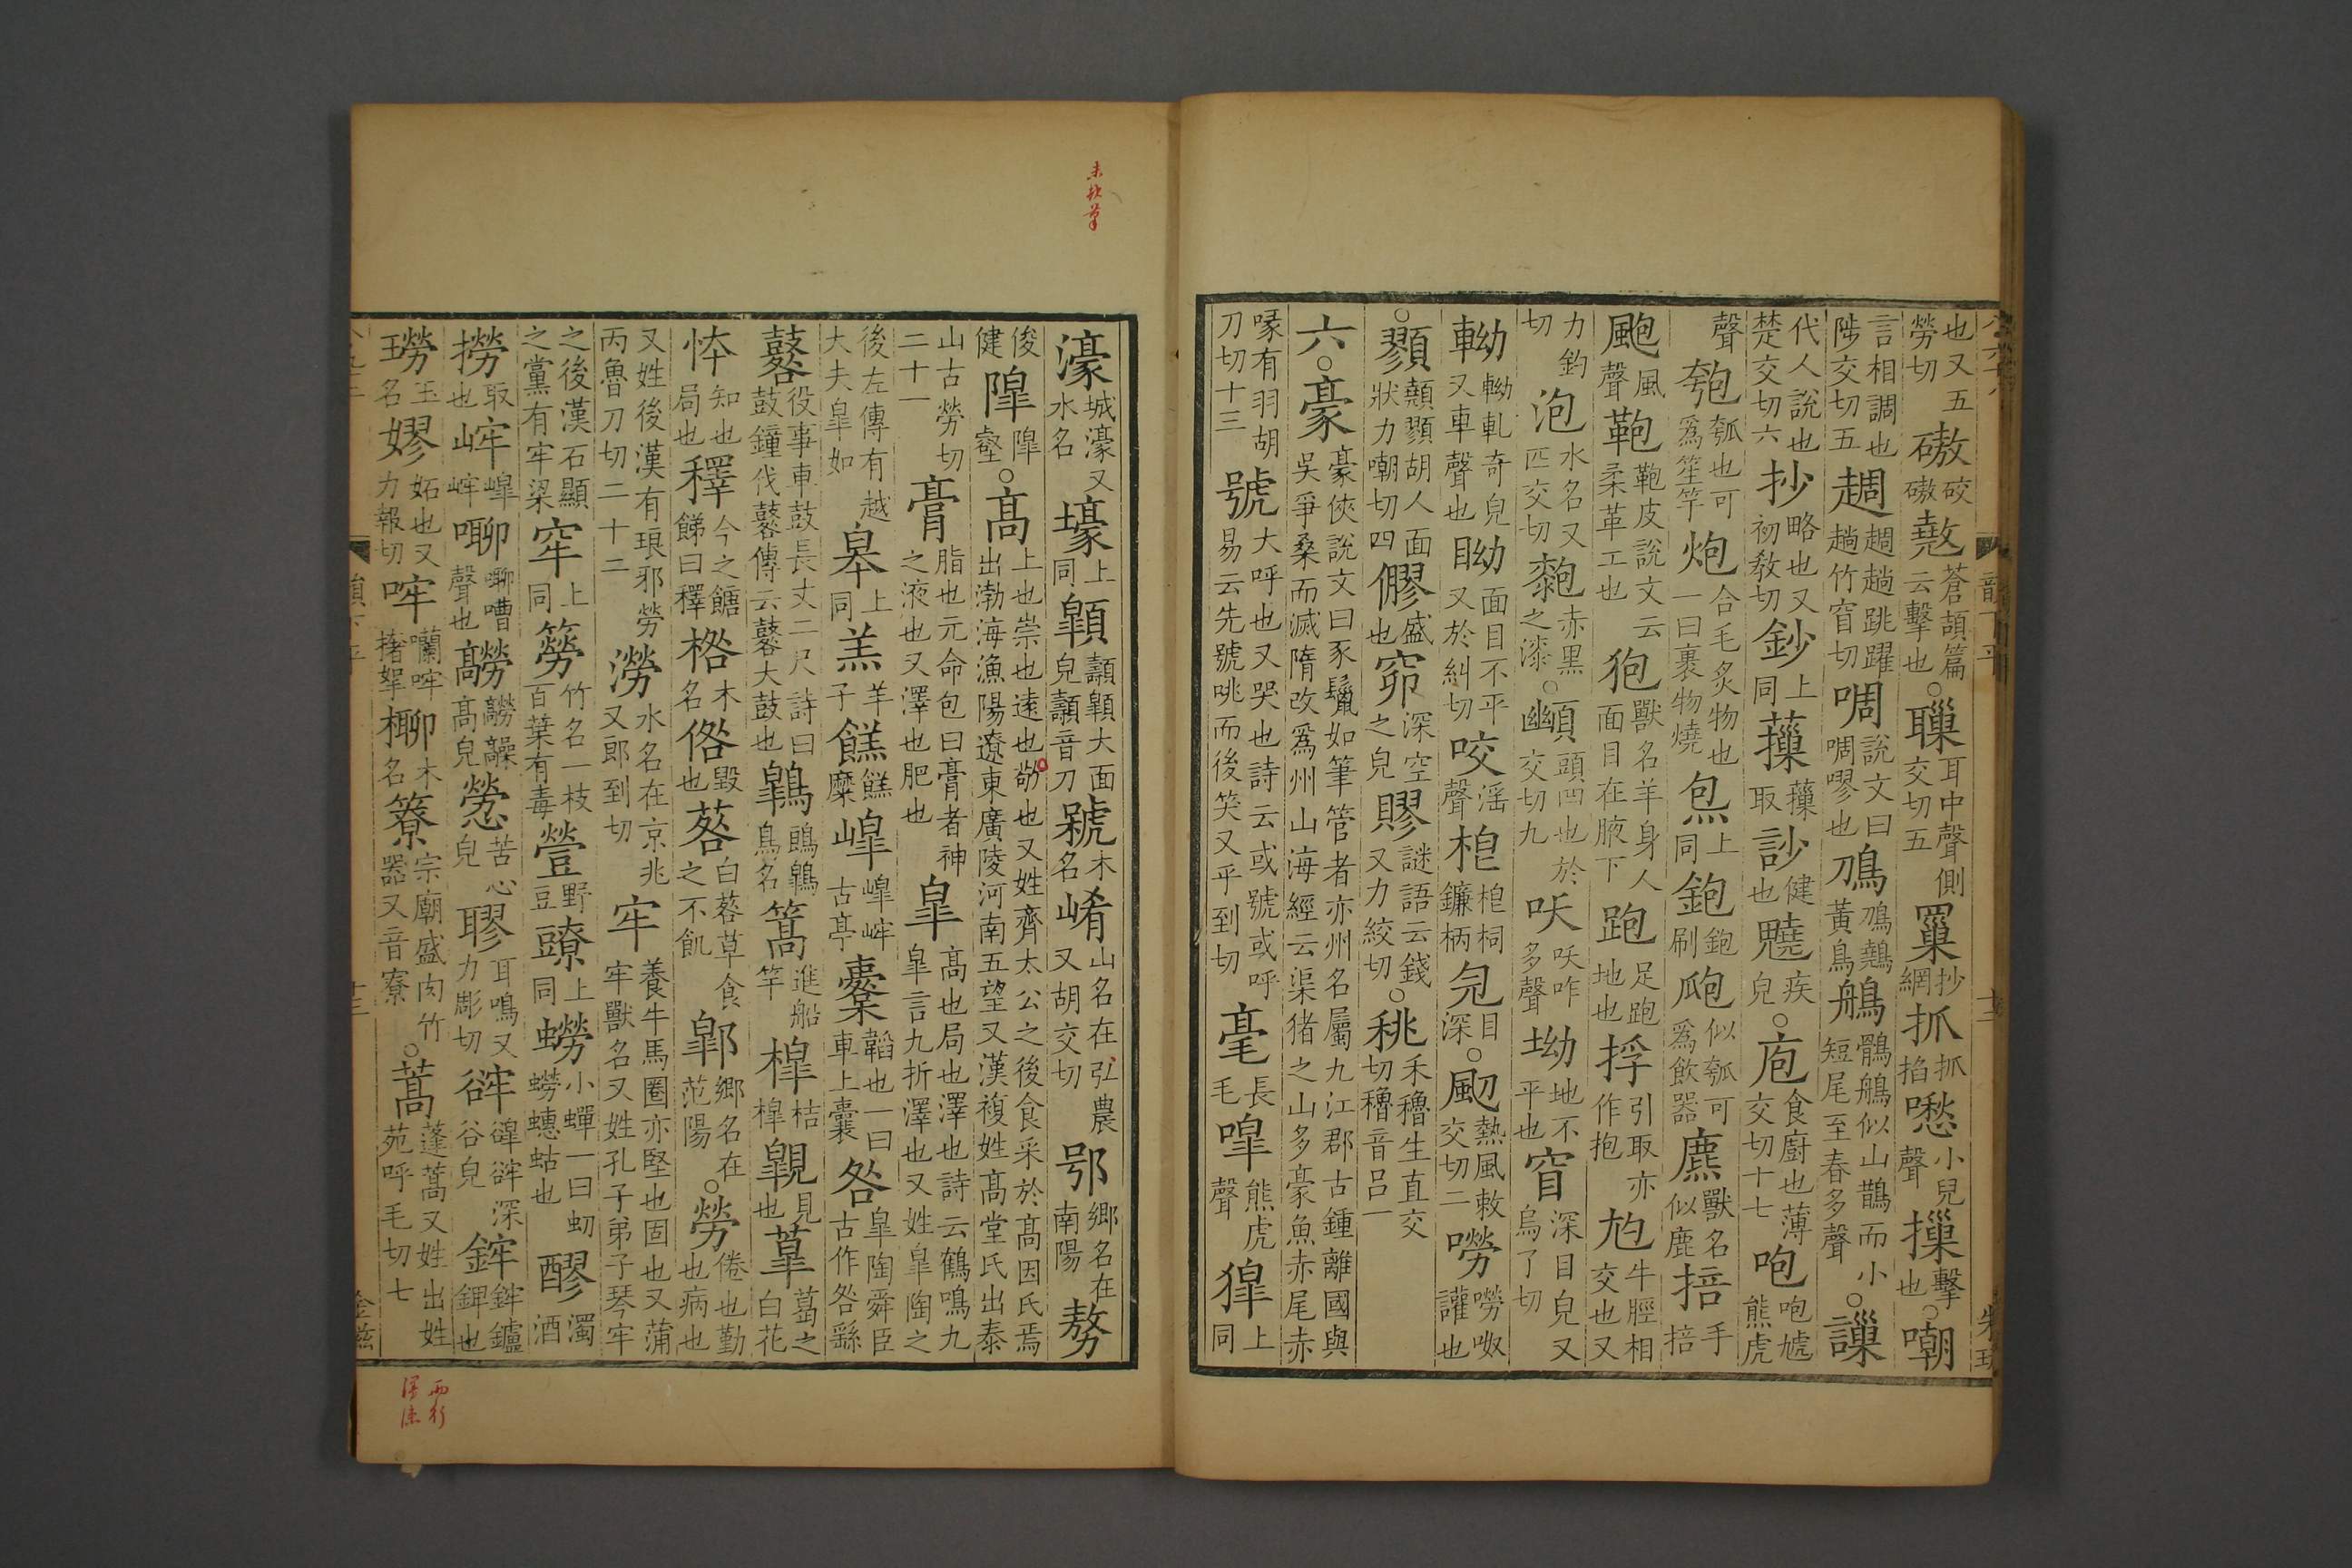 也又五勞切磝磝磽䵅蒼頡篇云擊也○𦗔耳中聲側交切五罺抄網抓抓掐㗙小兒聲摷擊也○嘲
言相調也陟交切五趙趙趙跳躍趙竹窅切啁說文曰啁嘐也鳭鳭鷯黃鳥鵃鶻鵃似山鵲而小短尾至春多聲○𧬨
代人說也楚交切六抄略也又初教切鈔上同䕭䕭取訬健也䫿疾皃○庖食廚也薄交切十七咆咆㙈熊虎
聲匏瓠也可爲笙竽炮合毛炙物也一曰裹物燒炰上同鉋鉋刷瓟似瓠可爲飲器麃獸名似鹿掊手掊
颮風聲鞄鞄皮說文云柔革工也狍獸名羊身人面目在腋下跑足跑地也捊引取亦作抱㝿牛脛相交也又
力釣切泡水名又匹交切䵢赤黑之漆○䫜頭凹也於交切九吙吙咋多聲坳地不平也窅深目皃又烏了切
軪軪軋奇皃又車聲也眑面目不平又於糾切咬淫聲枹枹桐鐮柄窅目深○颲熱風敕交切二嘮嘮呶讙也
○顟䫜顟胡人面狀力嘲切四㺒盛也窌深空之皃賿謎語云錢又力絞切○䄻禾穭生直交切穭音呂一
六○豪豪俠說文曰豕鬣如筆管者亦州名屬九江郡古鍾離國與吳爭桑而滅隋改爲州山海經云渠猪之山多豪魚赤尾赤
喙有羽胡刀切十三號大呼也又哭也詩云或號或呼易云先號咷而後笑又乎到切毫長毛嘷熊虎聲獆上同
濠城濠又水名壕上同顥顥大面皃顥音刀號木名崤山名在弘農又胡交切鄂鄉名在南陽勢
俊健隍隍壑○高上也崇也遠也敞也又姓齊太公之後食采於高因氏焉出渤海漁陽遼東廣陵河南五望又漢複姓高堂氏出泰
山古勞切二十一膏脂也元命包曰膏者神之液也又澤也肥也皐高也局也澤也詩云鶴鳴九皐言九折澤也又姓皐陶之
後左傳有越大夫皐如皋上同羔羊子餻餻糜㟸㟸㟹古亭櫜韜也一曰車上囊咎皐陶舜臣古作咎繇
鼛役事車鼓長丈二尺詩曰鼓鐘伐鼛傳云鼛大鼓也鷱鴞鷱鳥名篙進船竿槔桔槔䁘見也䓘葛之白花
㤒知也局也䆁今之餹餳曰䆁㮮木名㑻毀也䓘白䓘草食之不飢鄡鄉名在范陽○勞倦也勤也病也
又姓後漢有琅邪勞丙魯刀切二十二澇水名在京兆又郎到切牢養牛馬圈亦堅也固也又蒲牢獸名又姓孔子弟子琴牢
之後漢石顯之黨有牢梁窂上同簩竹名一枝百葉有毒䝁野豆䝤上同蟧小蟬一曰虭蟧蟪蛄也醪濁酒
撈取也㟹㟸㟹嘐嘐嘈聲也髝髝髞高皃憥苦心皃聊耳鳴又力彫切谾谾谾深谷皃鉾鉾鑪鉀也
璙玉名嫪妬也又力報切哰囒哰撦拏橑木名簝宗廟盛肉竹器又音寮○蒿蓬蒿又姓出姓苑呼毛切七
未欽筆
兩行